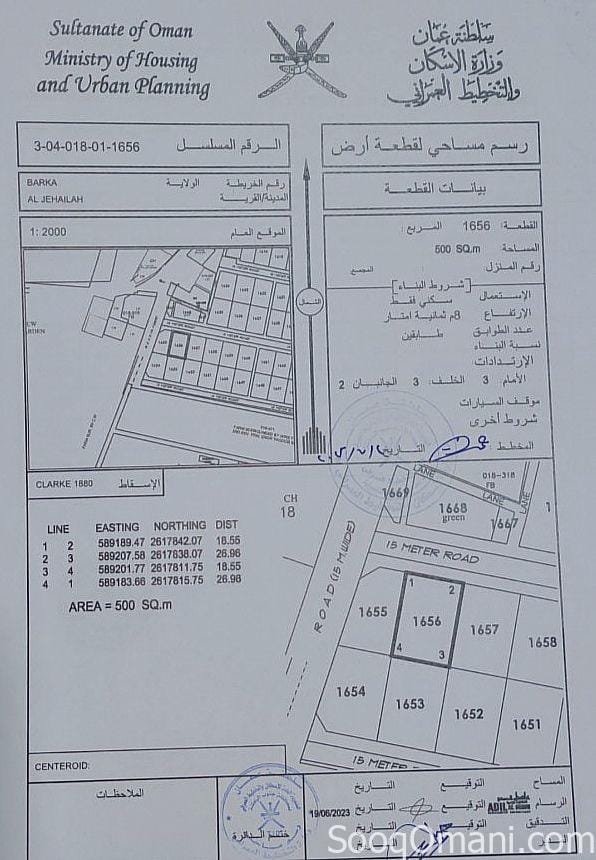 Sultanate of Oman
Ministry of Housing
and Urban Planning
سلطنة عمان
وزارة الإسكان
والتخطيط العمراني
3-04-018-01-1656 الرقم المسلسل
رسم مساحي لقطعة أرض
BARKA الولاية رقم الخريطة
AL JEHAILAH المدينة/القرية
بيانات القطعة
1: 2000 الموقع العام
القطعة: 1656 المربع:
المساحة: 500 SQ.m
رقم المنزل المجمع
شروط البناء
الإستعمال سكني فقط
الإرتفاع 8م ثمانية امتار
عدد الطوابق طابقين
نسبة البناء
الإرتدادات
الأمام: 3 الخلف: 3 الجانبان: 2
موقف السيارات
شروط أخرى
المخطط: التاريخ
CLARKE 1880 الإسقاط
LINE EASTING NORTHING DIST
1 2 589189.47 2617842.07 18.55
2 3 589207.58 2617838.07 26.96
3 4 589201.77 2617811.75 18.55
4 1 589183.66 2617815.75 26.96
AREA = 500 SQ.m
CH
18
1669
LANE
018-318
FB
LANE
LANE
1668
green
1667
1
15 METER ROAD
ROAD (15 M.WIDE)
1655
1
2
1656
4
3
1657
1658
1654
1653
1652
1651
15 METER
CENTEROID:
الملاحظات
ختم الدائرة
المساح التوقيع التاريخ
الرسام ADIL التوقيع التاريخ 19/06/2023
التدقيق التوقيع التاريخ
التاريخ
SooqOmani.com